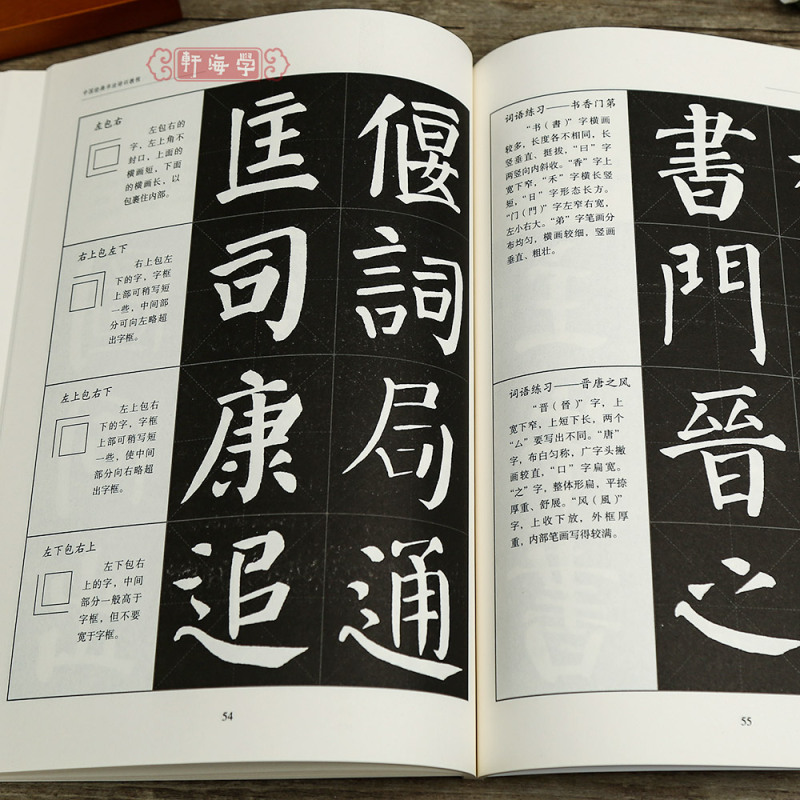 軒海學
中国经典书法培训教程
左包右
左包右的
字，左上角不
封口，上面的
横画短，下面
的横画长，以
包裹住内部。
匡 偃
右上包左下
右上包左
下的字，字框
上部可稍写短
一些，中间部
分可向左略超
出字框。
司 詞
左上包右下
左上包右
下的字，字框
上部可稍写短
一些，使中间
部分向右略超
出字框。
康 局
左下包右上
左下包右
上的字，中间
部分一般高于
字框，但不要
宽于字框。
追 通
54
词语练习——书香门第
“书（書）”字横画
较多，长度各不相同，长
竖垂直、挺拔，“曰”字
两竖向内斜收。“香”字上
宽下窄，“禾”字横长竖
短，“日”字形态长方。
“门（門）”字左窄右宽，
左小右大。“弟”字笔画分
布均匀，横画较细，竖画
垂直、粗壮。
書
門
词语练习——晋唐之风
“晋（晉）”字，上
宽下窄，上短下长，两个
“厶”要写出不同。“唐”
字，布白匀称，广字头撇
画较直，“口”字扁宽。
“之”字，整体形扁，平捺
厚重、舒展。“风（風）”
字，上收下放，外框厚
重，内部笔画写得较满。
晉
之
55